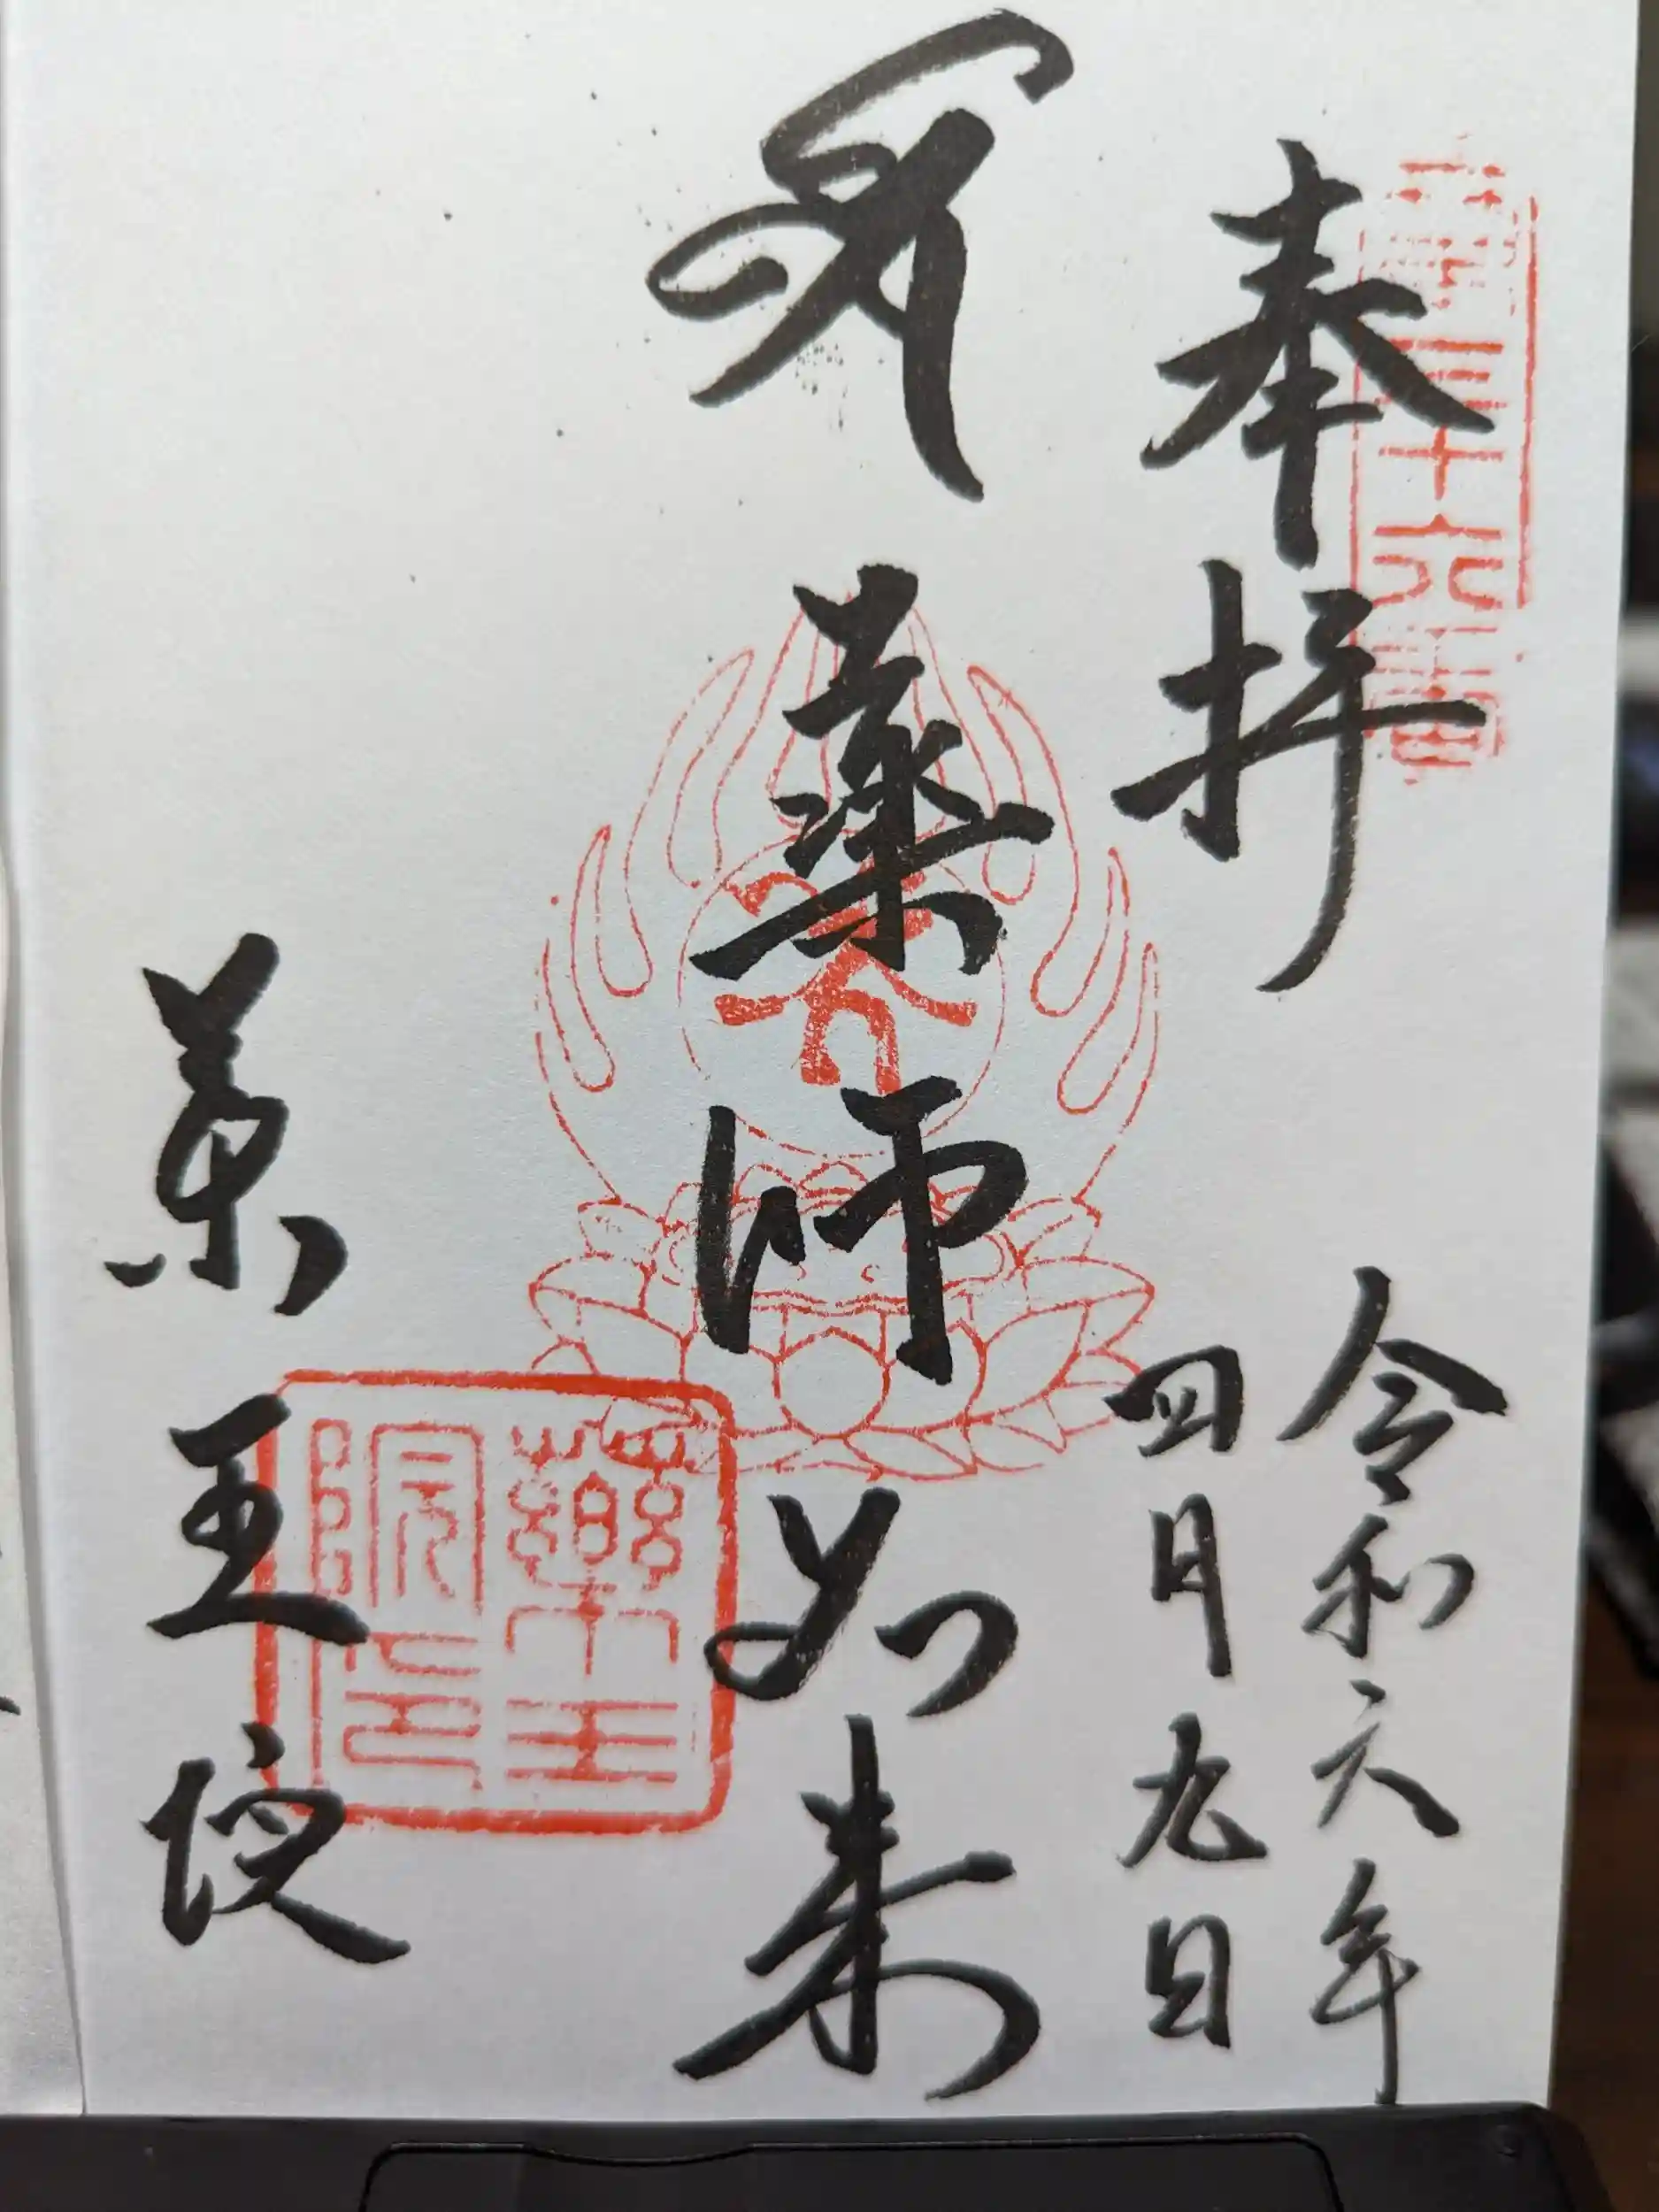 第三十六番
奉拝
令和六年
四月九日
薬師如来
薬王院
藥王
院印